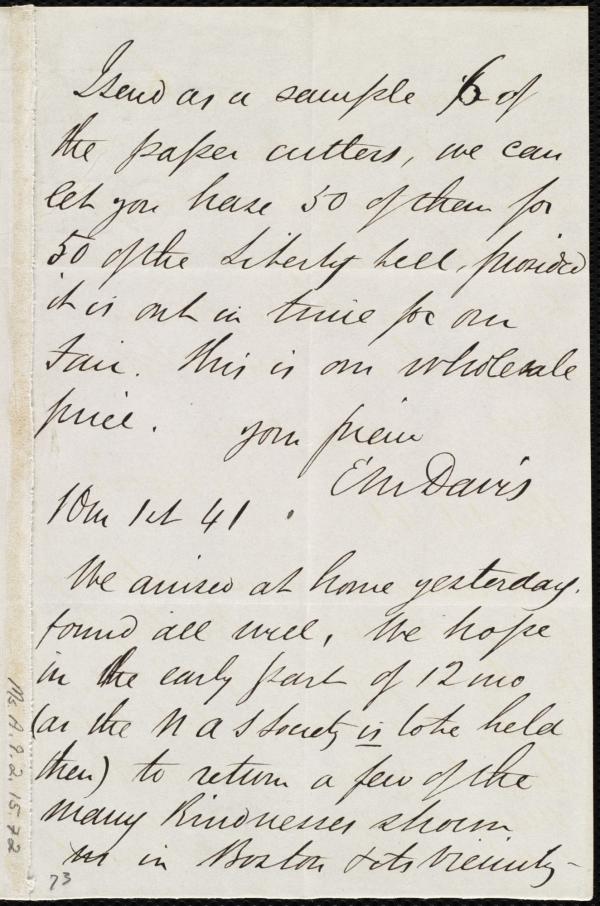 I send as a sample 6 of
the paper cutters, we can
let you have 50 of them for
50 of the Liberty bell, provided
it is out in time for our
Fair. This is our wholesale
price. your friend
E M Davis
10m 1st 41.
We arrived at home yesterday.
found all well, We hope
in the early part of 12 mo
(as the N A S Society is to be held
then) to return a few of the
many kindnesses shown
us in Boston & its vicinity -
73
Ms. A. 9. 2. 15. 72